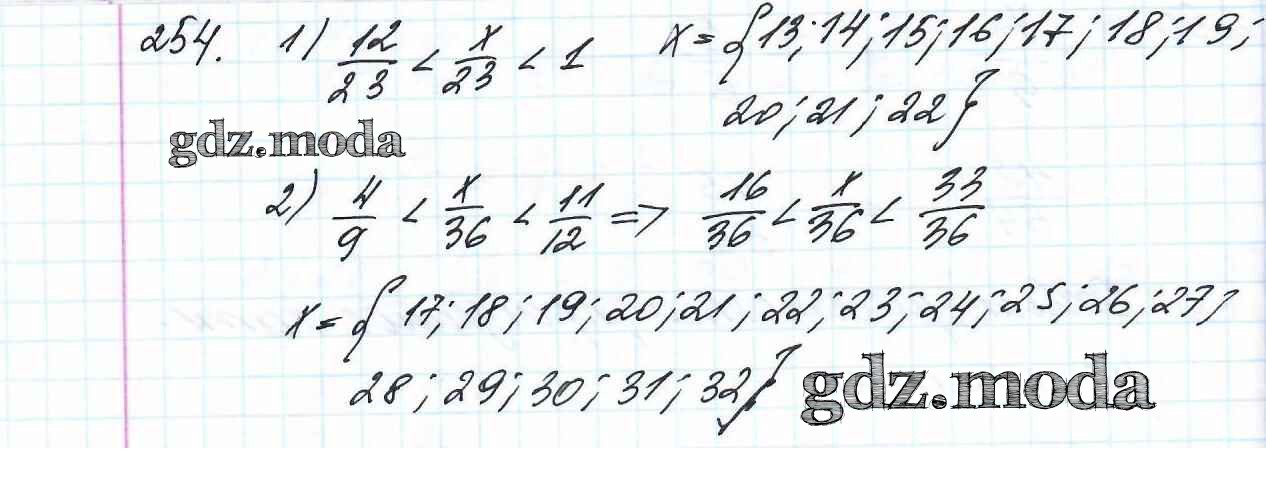 254. 1) 12/23 < x/23 < 1 x = {13; 14; 15; 16; 17; 18; 19;
20; 21; 22}
gdz.moda
2) 4/9 < x/36 < 11/12 => 16/36 < x/36 < 33/36
x = {17; 18; 19; 20; 21; 22; 23; 24; 25; 26; 27;
28; 29; 30; 31; 32}
gdz.moda